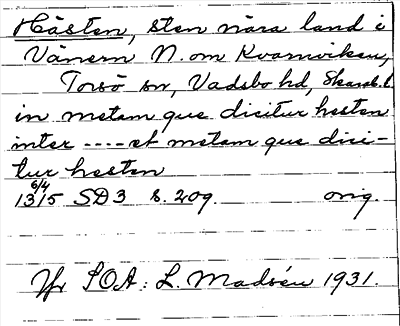 Hästen, sten nära land i
Vänern N. om Kvarnviken,
Torsö sn, Vadsbo hd, Skarab. l.
in metam que dicitur hesten
inter ---- et metam que dici-
tur hesten
13 6/4 15 SD 3 s. 209. orig.
Jfr SOA: L. Madsén 1931.